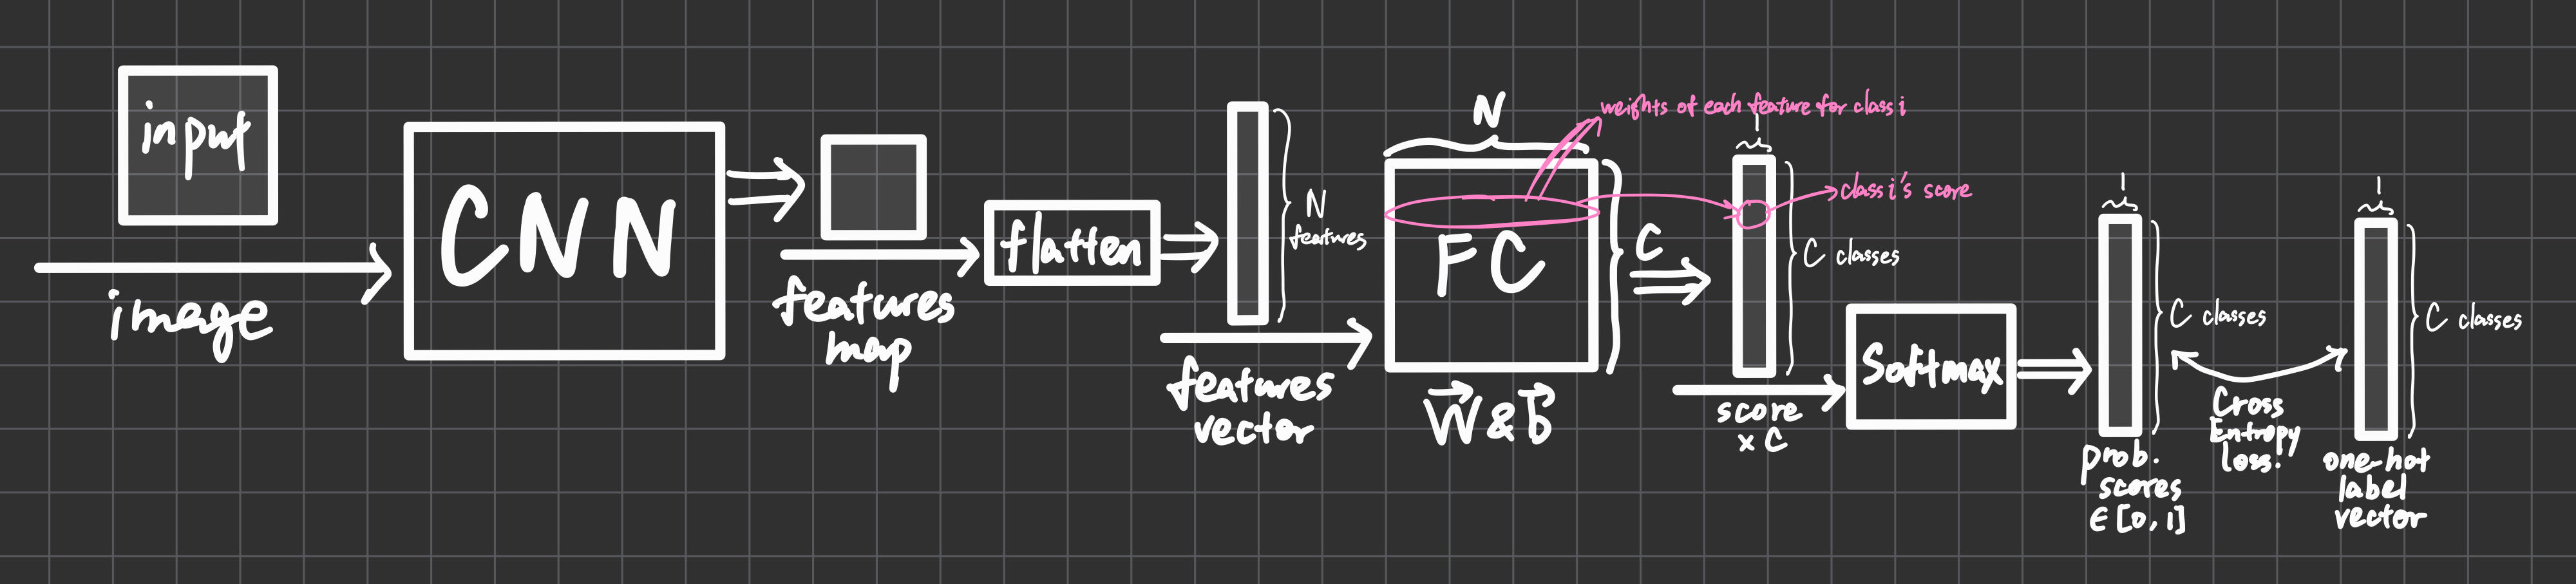 input
image
CNN
features
map
flatten
N
features
features
vector
N
weights of each feature for class i
FC
C
W & b
1
class i's score
C classes
score
x C
Softmax
1
C classes
prob.
scores
∈ [0, 1]
Cross
Entropy
loss.
1
C classes
one-hot
label
vector